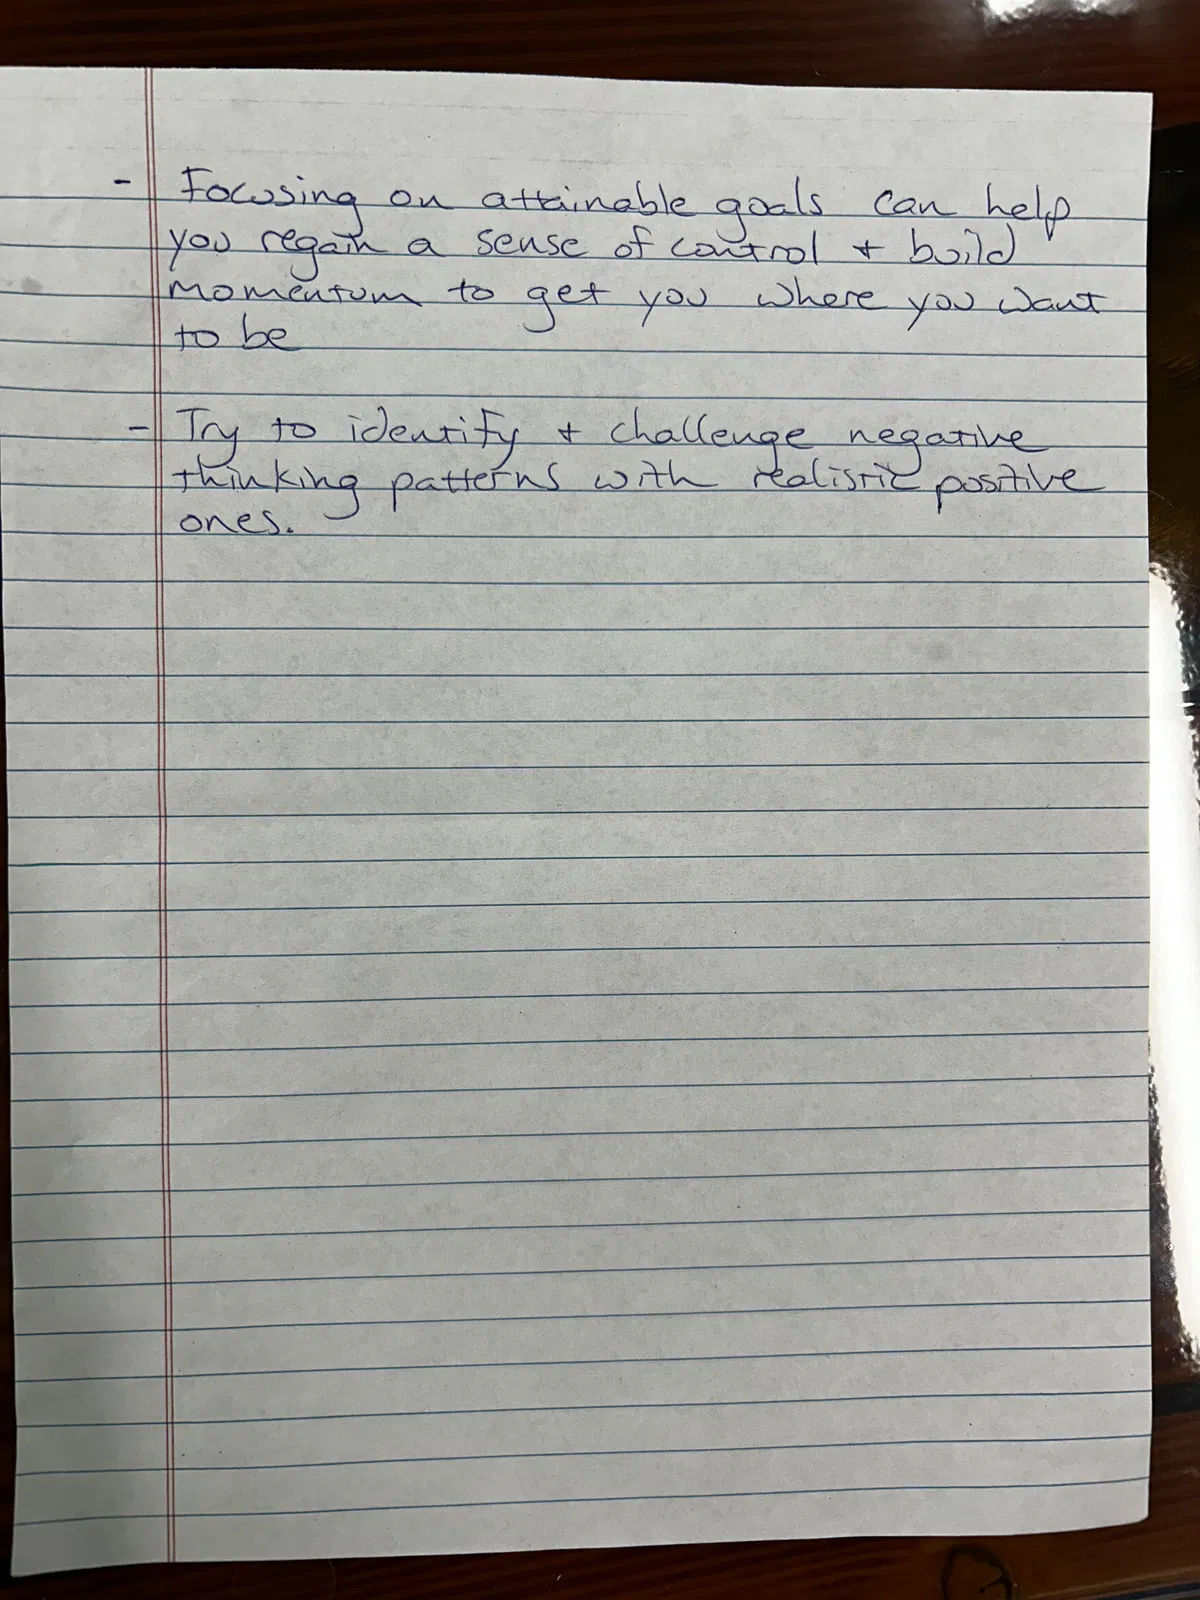 - Focusing on attainable goals can help
you regain a sense of control + build
momentum to get you where you want
to be
- Try to identify + challenge negative
thinking patterns with realistic positive
ones.